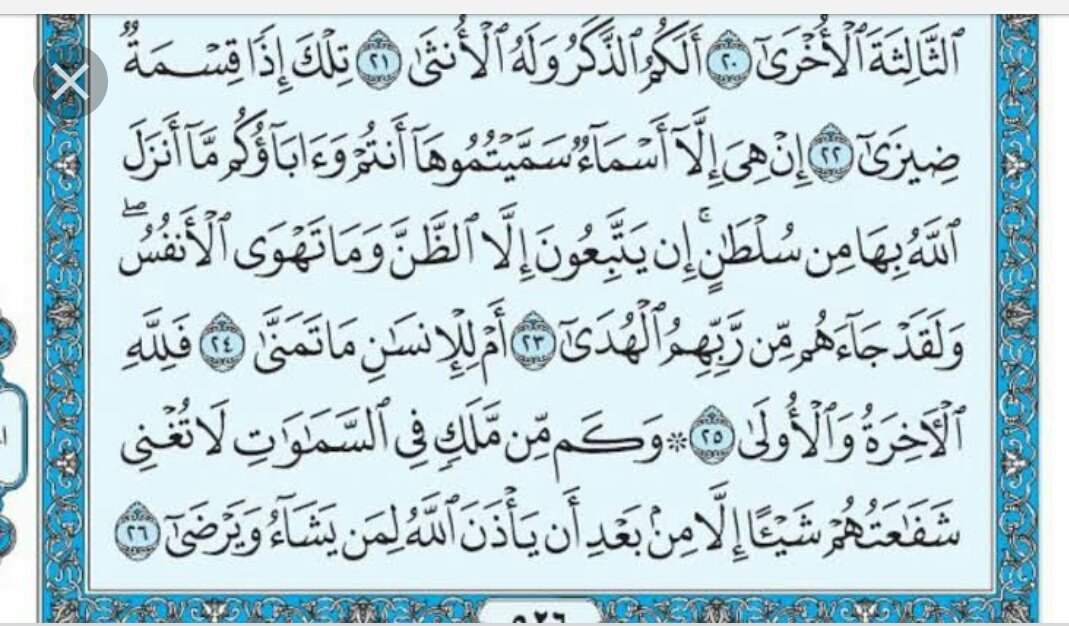 ٱلثَّالِثَةَ ٱلۡأُخۡرَىٰٓ ٢٠ أَلَكُمُ ٱلذَّكَرُ وَلَهُ ٱلۡأُنثَىٰ ٢١ تِلۡكَ إِذٗا قِسۡمَةٞ
ضِيزَىٰٓ ٢٢ إِنۡ هِيَ إِلَّآ أَسۡمَآءٞ سَمَّيۡتُمُوهَآ أَنتُمۡ وَءَابَآؤُكُم مَّآ أَنزَلَ
ٱللَّهُ بِهَا مِن سُلۡطَٰنٍۚ إِن يَتَّبِعُونَ إِلَّا ٱلظَّنَّ وَمَا تَهۡوَى ٱلۡأَنفُسُۖ
وَلَقَدۡ جَآءَهُم مِّن رَّبِّهِمُ ٱلۡهُدَىٰٓ ٢٣ أَمۡ لِلۡإِنسَٰنِ مَا تَمَنَّىٰ ٢٤ فَلِلَّهِ
ٱلۡأٓخِرَةُ وَٱلۡأُولَىٰ ٢٥ ۞ وَكَم مِّن مَّلَكٖ فِي ٱلسَّمَٰوَٰتِ لَا تُغۡنِي
شَفَٰعَتُهُمۡ شَيۡـًٔا إِلَّا مِنۢ بَعۡدِ أَن يَأۡذَنَ ٱللَّهُ لِمَن يَشَآءُ وَيَرۡضَىٰٓ ٢٦
٥٢٦